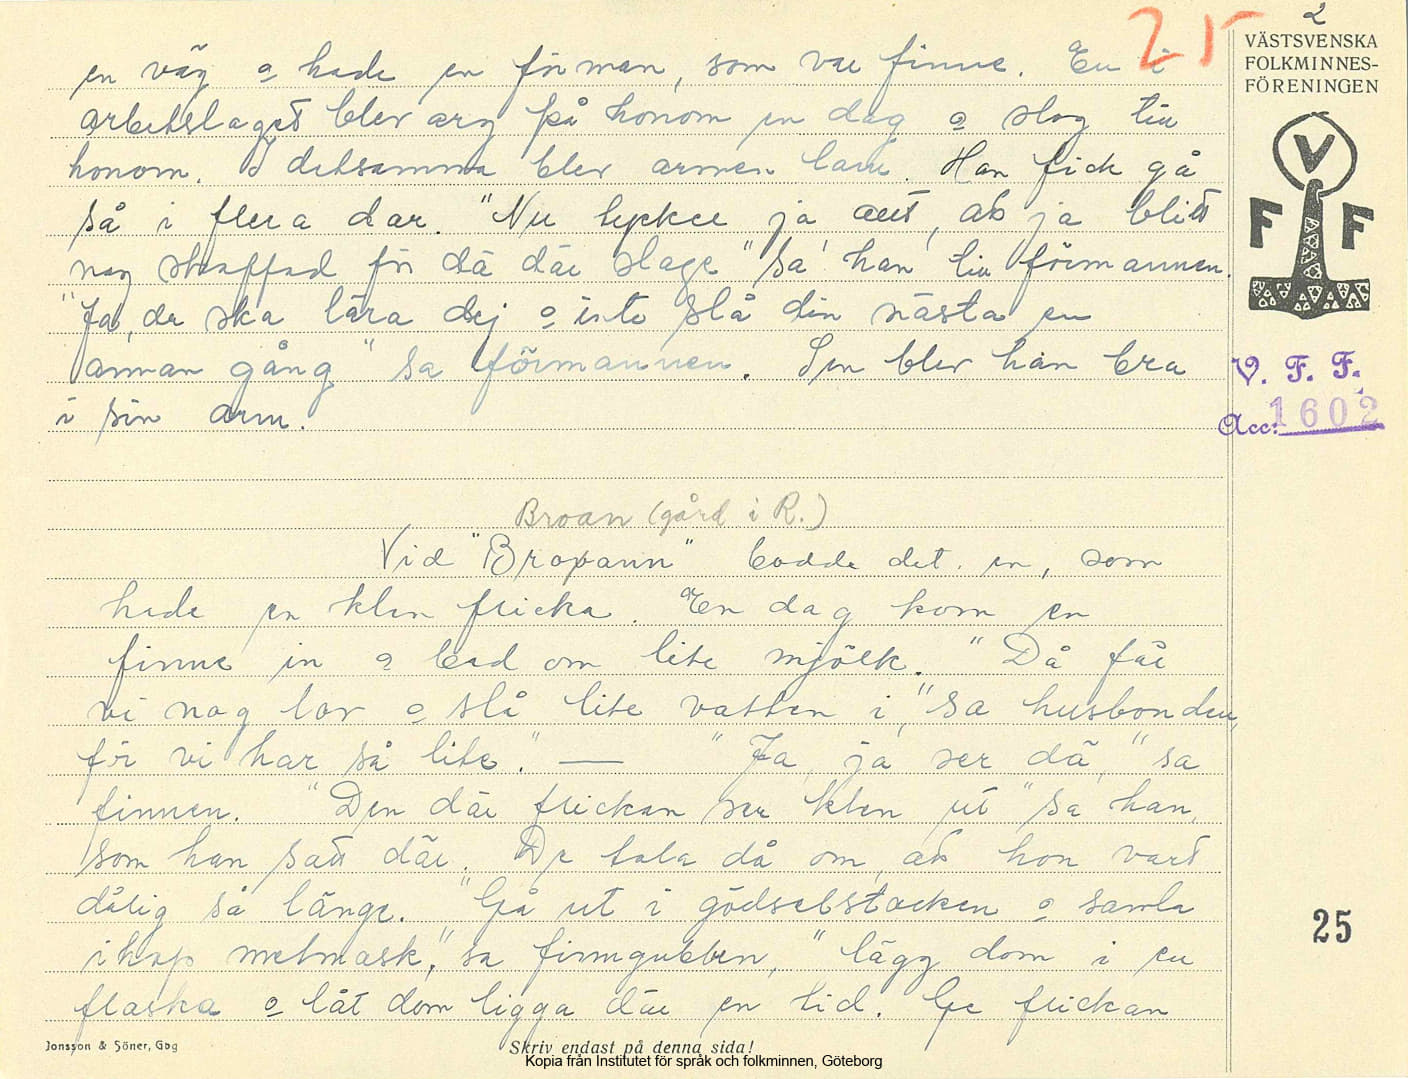 25
2
VÄSTSVENSKA
FOLKMINNES-
FÖRENINGEN
V
F F
V. F. F.
Acc: 1602
en väg o hade en förman, som var finne. En i
arbetslaget blev arg på honom en dag o slog till
honom. I detsamma blev armen lam. Han fick gå
så i flera dar. "Nu tycker ja allt, att ja blitt
nog straffad för dä där slage" sa han till förmannen.
"Ja, de ska lära dej o inte slå din nästa en
annan gång" sa förmannen. Sen blev han bra
i sin arm.
Broan (gård i R.)
Vid "Broxann" bodde det en, som
hade en klen flicka. En dag kom en
finne in o bad om lite mjölk. "Då får
vi nog lov o slå lite vatten i," sa husbonden,
för vi har så lite." — "Ja, ja ser dä," sa
finnen. "Den där flickan ser klen ut" sa han,
som han satt där. De tala då om, att hon vart
dålig så länge. "Gå ut i gödselstacken o samla
ihop metmask," sa finngubben, "lägg dom i en
flaska o låt dom ligga där en tid. Ge flickan
25
Jonsson & Söner, Gbg
Skriv endast på denna sida!
Kopia från Institutet för språk och folkminnen, Göteborg